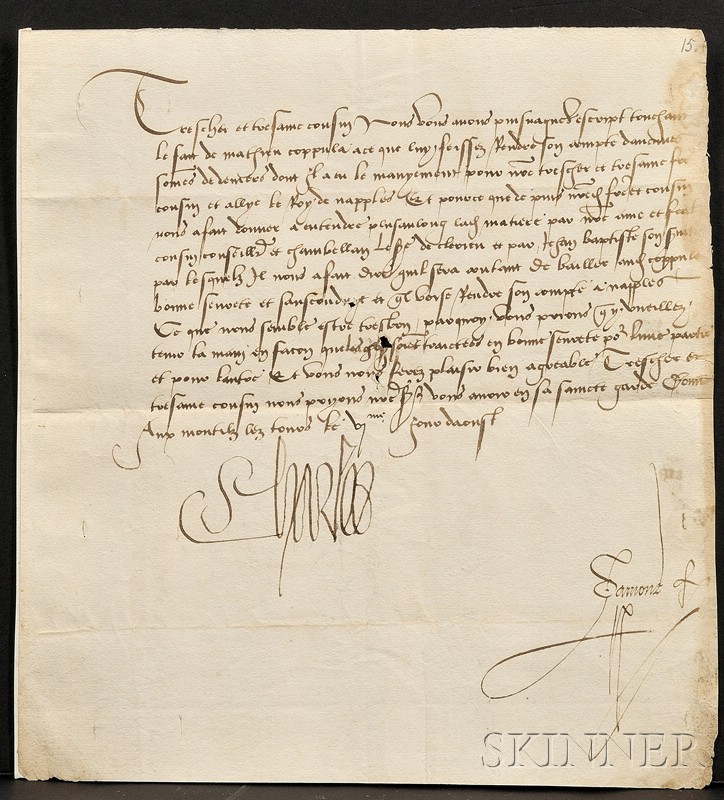 15.
Trescher et tresame cousin Nous vous avons puis naguer escript touchant
le fait de mathieu coppula ace que luy feissez Rendre son compte daucunes
sommes de deniers dont Il a eu le manyement pour nre trescher et tresame
cousin et allye le Roy de napples Et pource que de puis nred frere et cousin
nous a fait donner a entendre plusaulong lad matiere par nre ame et feal
cousin conseillr et chambellan le sr de clerieu et par Jehan baptiste son
par lesquelz Il nous a fait dire quil sera contant de bailler aud coppula
bonne seurete et saufconduyt et quil voise Rendre son compte a napples
Ce que nous semble estre tresbon parquoy vous prions que y vueillez
tenir la main en facon que les soient traictees en bonne seurete por lune partie
et pour lautre Et vous nous ferez plaisir bien agreable Trescher et
tresame cousin nous prions nre sr vous avoir en sa saincte garde Donne
Aux montilz lez tours le vjme Jour daoust
Charles
SKINNER